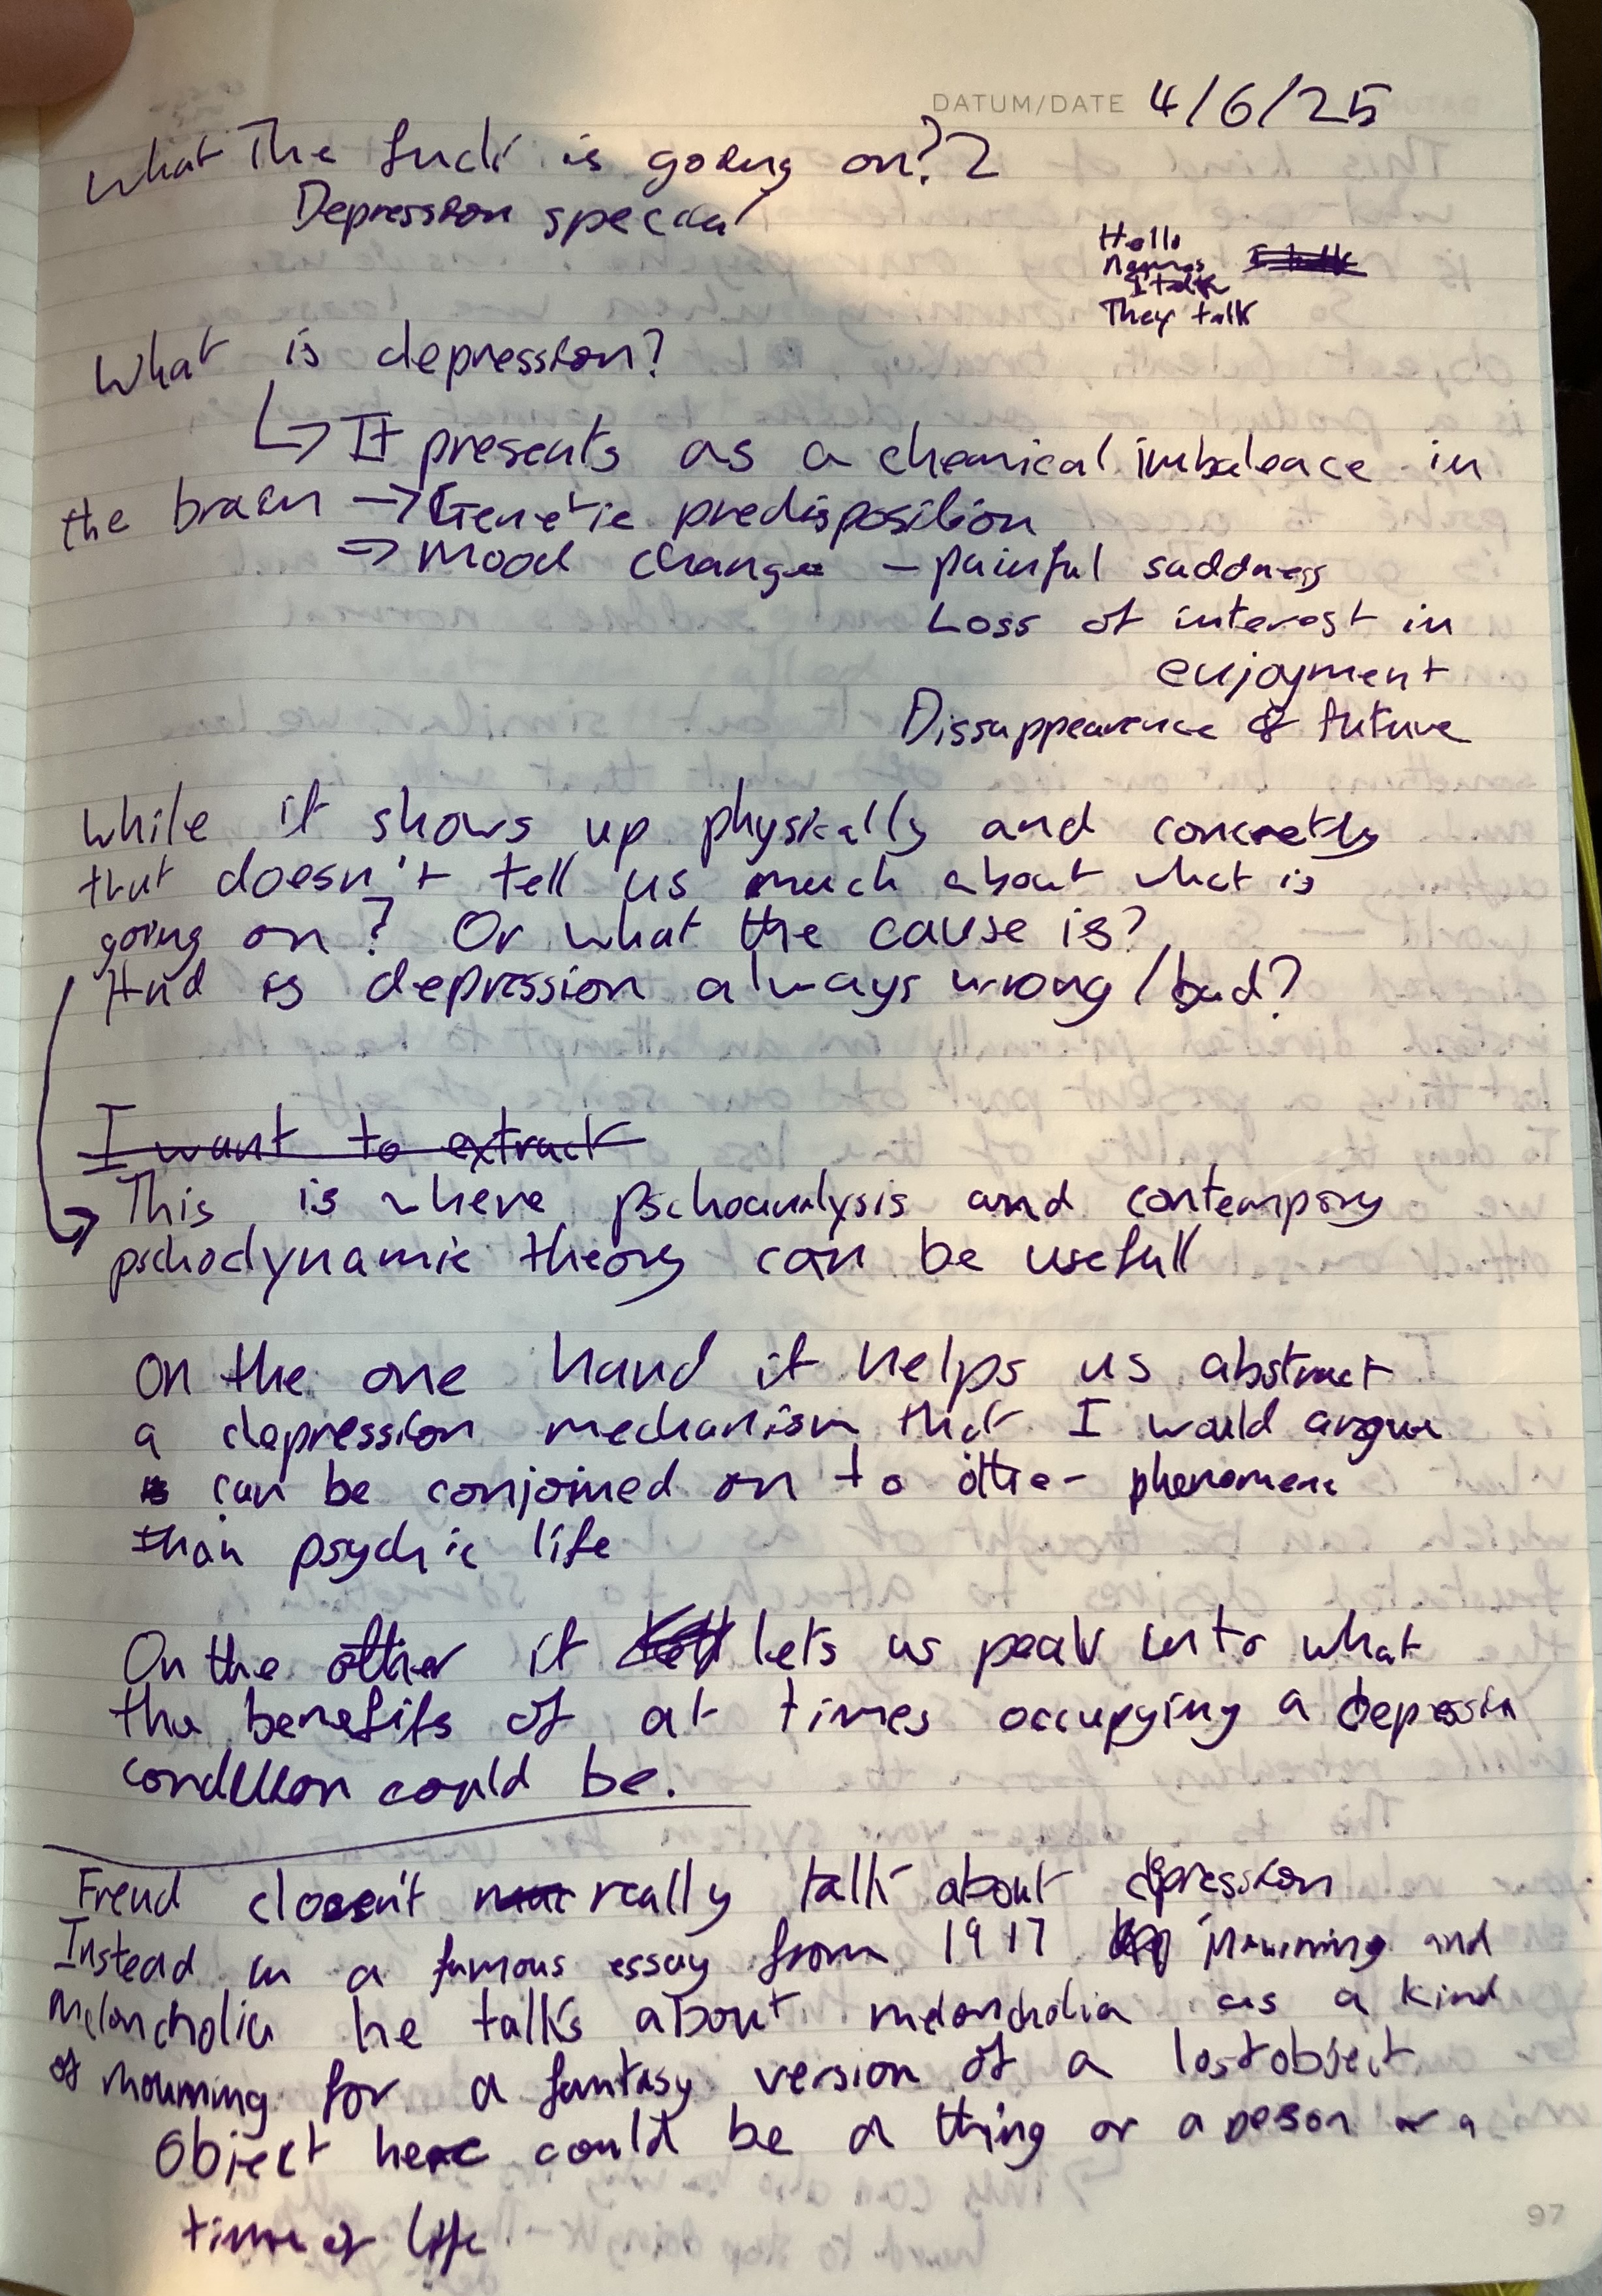 DATUM/DATE 4/6/25
What The fuck is going on? 2
Depression special
Hello
Names
I talk
They talk
What is depression?
↳ It presents as a chemical imbalance in
the brain → Genetic predisposition
⇒ Mood change – painful saddness
Loss of interest in
enjoyment
Dissappearence of future
While it shows up physically and concretly
that doesn't tell us much about what is
going on? Or what the cause is?
And is depression always wrong/bad?
I want to extract
This is where pschoanalysis and contempory
pschodynamic theory can be usefull
On the one hand it helps us abstract
a depression mechanism that I would argue
can be conjoined on to other phenomena
than psychic life
On the other it lets us peak into what
the benefits of at times occupying a depressin
condition could be.
Freud doesn't really talk about dpression
Instead in a famous essay from 1917 Mourning and
Melancholia he talks about melancholia as a kind
of mourning for a fantasy version of a lost object
Object here could be a thing or a person or a
time of life
97